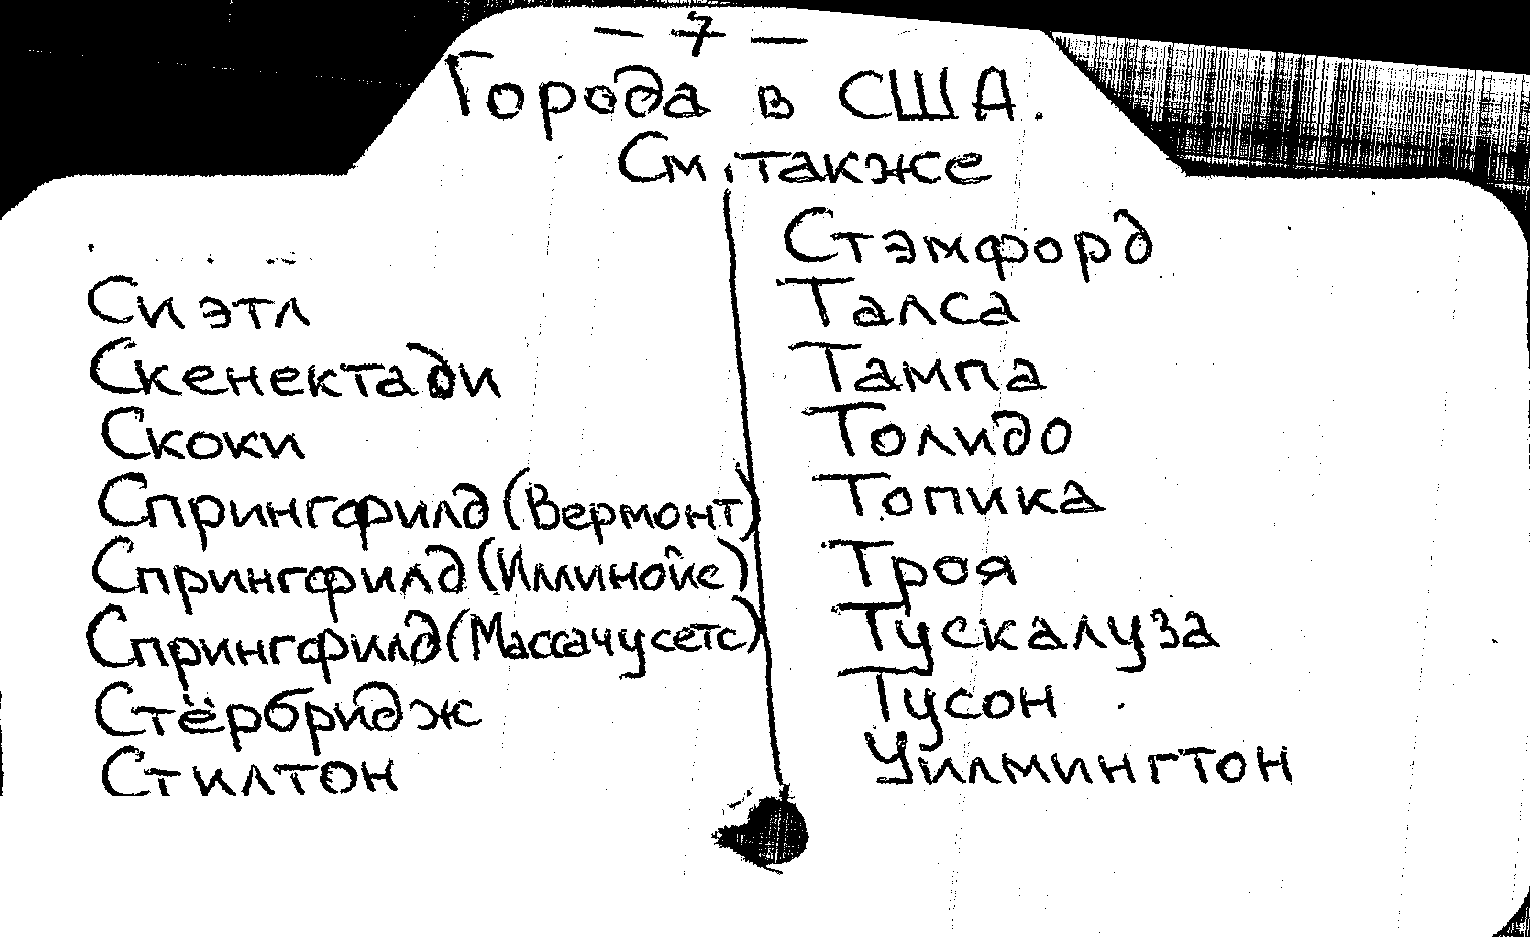 — 7 —
Города в США.
См. также
Сиэтл
Скенектади
Скоки
Спрингфилд (Вермонт)
Спрингфилд (Иллинойс)
Спрингфилд (Массачусетс)
Стёрбридж
Стилтон
Стэмфорд
Талса
Тампа
Толидо
Топика
Троя
Тускалуза
Тусон
Уилмингтон